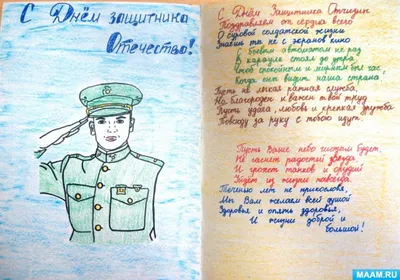 С Днём защитника
Отечества!
С Днём Защитника Отчизны
Поздравляем от сердца всего
О суровой солдатской жизни
Знаешь ты не с экранов кино
С боевым автоматом не раз
В карауле стоял до утра,
Чтоб спокойным и мирным был час,
Когда сны видит наша страна,
Пусть не легка ратная служба,
Но благороден и важен твой труд
Пусть удача, любовь и крепкая дружба
Повсюду за руку с тобою идут.
Пусть Ваше небо чистым будет,
Не гаснет радостей звезда,
И грохот танков и орудий
Уйдет из жизни навсегда.
Точно лет не приколовш,
Мы Вам желаем всей душой
Здоровья и опять здоровья,
И жизни доброй и
большой!
MAAM.RU